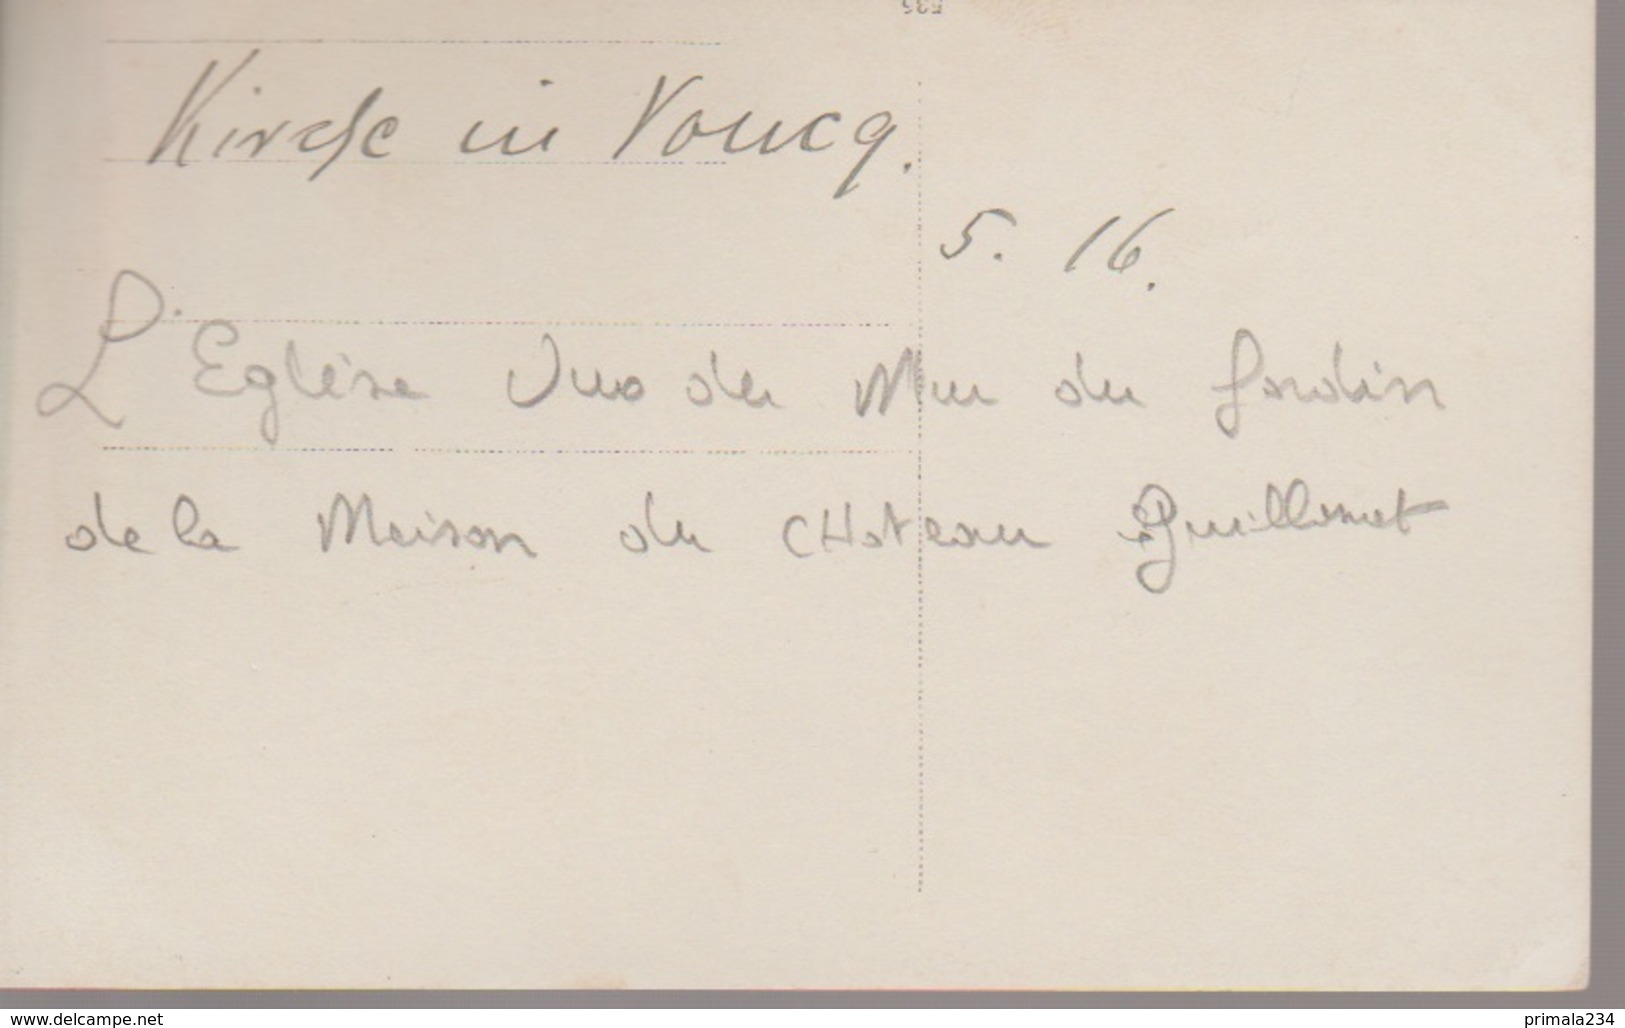 Kirche in Voucq.
5. 16.
L'Eglise Vue du Mur du Jardin
de la Maison du CHateau Guillemet
www.delcampe.net
primala234